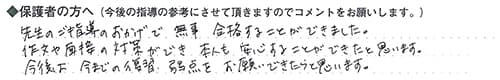 ◆保護者の方へ（今後の指導の参考にさせて頂きますのでコメントをお願いします。）
先生のご指導のおかげで 無事 合格することができました。
作文や面接の対策ができ 本人も 安心することができたと思います。
今後は 今までの復習 弱点を お願いできたらと思います。